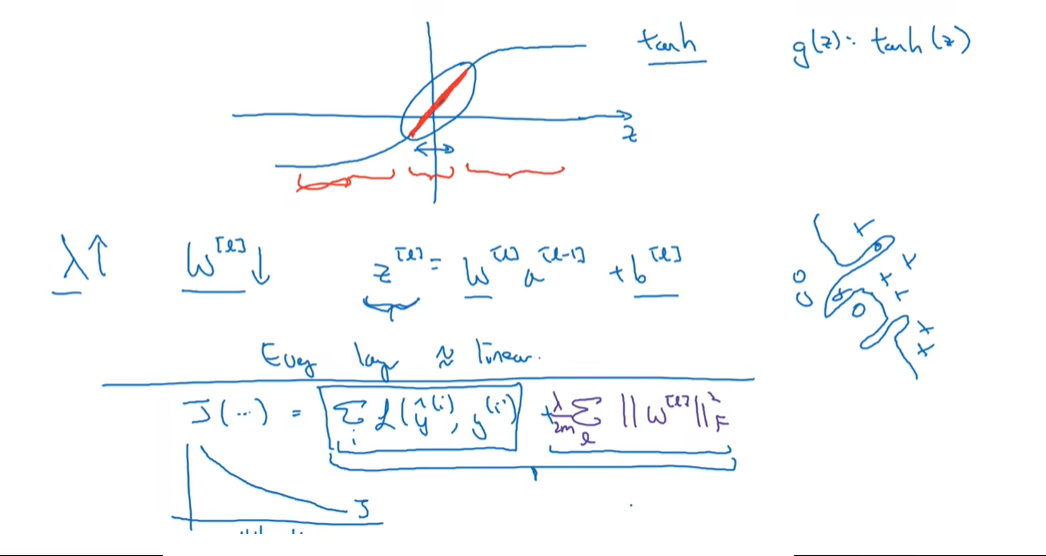 tanh g(z): tanh(z)
z
λ↑ W^[l]↓ z^[l] = W^[l] a^[l-1] + b^[l]
Every layer ≈ linear.
J(...) = Σ_i L(ŷ^(i), y^(i)) + λ/2m Σ_l ||W^[l]||²_F
J